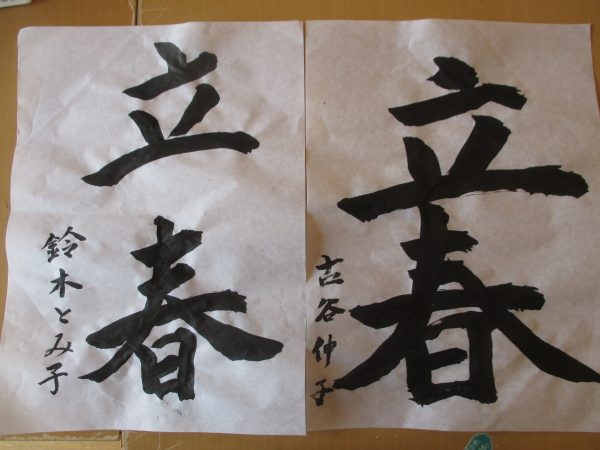 立春
鈴木とみ子
立春
古谷仲子